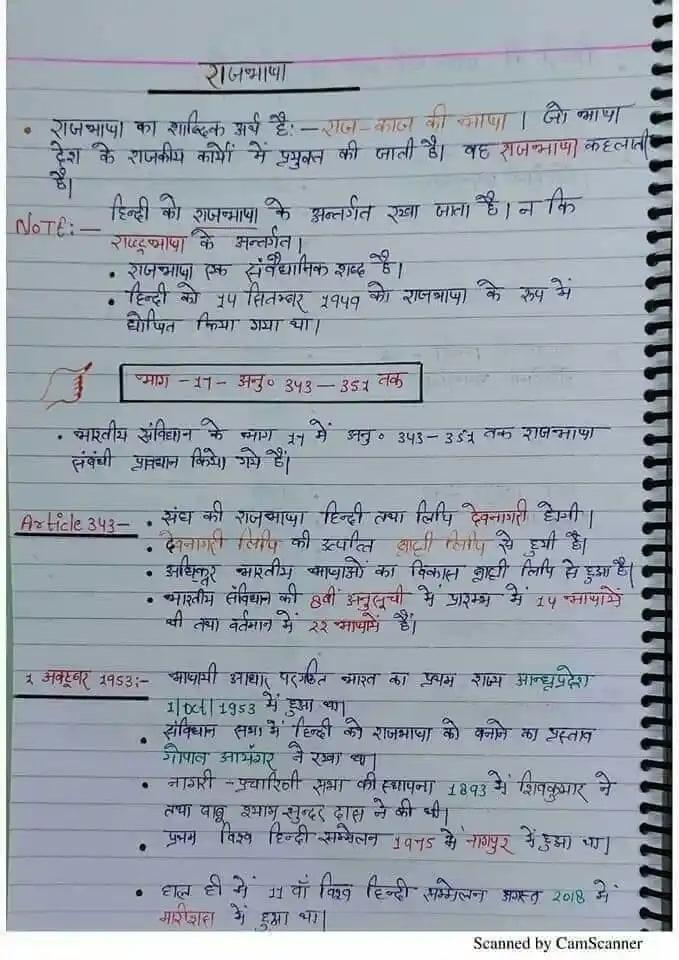 राजभाषा
• राजभाषा का शाब्दिक अर्थ है:- राज-काज की भाषा | जो भाषा
देश के राजकीय कार्यो में प्रयुक्त की जाती है। वह राजभाषा कहलाती
है।
NOTE:- हिन्दी को राजभाषा के अन्तर्गत रखा जाता है। न कि
राष्ट्रभाषा के अन्तर्गत।
• राजभाषा एक संवैधानिक शब्द है।
• हिन्दी को 14 सितम्बर 1949 को राजभाषा के रूप में
घोषित किया गया था।
भाग -17- अनु० 343-351 तक
• भारतीय संविधान के भाग 17 में अनु० 343-351 तक राजभाषा
संबंधी प्रावधान किये गये हैं।
Article 343- • संघ की राजभाषा हिन्दी तथा लिपि देवनागरी होगी |
• देवनागरी लिपि की उत्पत्ति ब्राह्मी लिपि से हुयी है।
• अधिकतर भारतीय भाषाओं का विकास ब्राह्मी लिपि से हुआ है।
• भारतीय संविधान की 8वीं अनुसूची में प्रारम्भ में 14 भाषायें
थी तथा वर्तमान में 22 भाषायें हैं।
1 अक्टूबर 1953:- भाषायी आधार पर गठित भारत का प्रथम राज्य आन्ध्रप्रदेश
1|Oct|1953 में हुआ था।
• संविधान सभा में हिन्दी को राजभाषा को बनाने का प्रस्ताव
गोपाल आयंगर ने रखा था।
• नागरी - प्रचारिणी सभा की स्थापना 1893 में शिवकुमार ने
तथा बाबू श्याम सुन्दर दास ने की थी।
• प्रथम विश्व हिन्दी सम्मेलन 1975 में नागपुर में हुआ था।
• हाल ही में 11 वाँ विश्व हिन्दी सम्मेलन अगस्त 2018 में
मारीशस में हुआ था।
Scanned by CamScanner